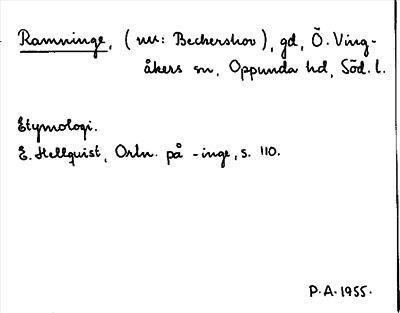 Ramninge, (nu: Beckershov), gd, Ö. Ving-
åkers sn, Oppunda hd, Söd. l.
Etymologi.
E. Hellquist, Ortn. på -inge, s. 110.
P.A. 1955.